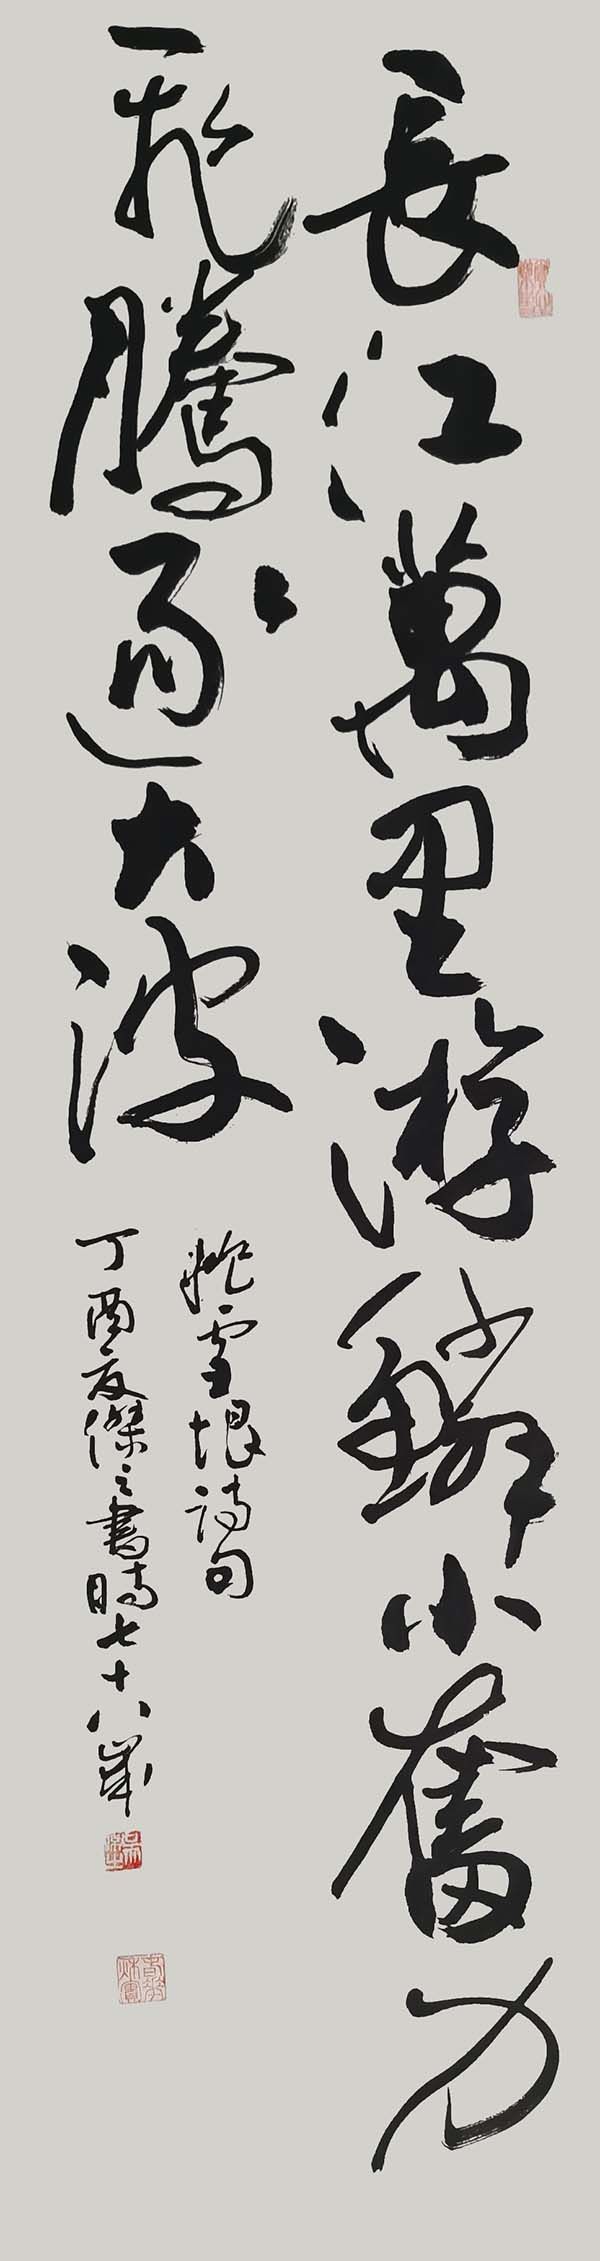 長江萬里游鱗小奮力
飛騰逐大波
姚雪垠詩句
丁酉夏傑之書時七十八歲